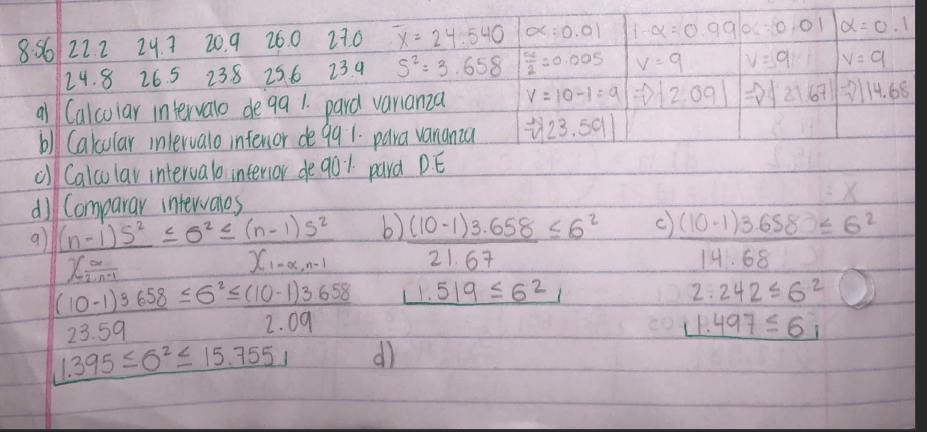 8.86 22.2 24.7 20.9 26.0 27.0 x̄ = 24.540 α=0.01 1-α=0.99 α=0.01 α=0.1
24.8 26.5 23.8 25.6 23.9 S²=3.658 α/2=0.005 v=9 v=9 v=9
a) Calcular intervalo de 99 %. para varianza v=10-1=9 ⇒ 2.09 ⇒ 21.67 ⇒ 14.68
b) Calcular intervalo inferior de 99 %. para varianza ⇒ 23.59
c) Calcular intervalo inferior de 90 %. para D.E
d) Comparar intervalos
a) (n-1)S² ≤ 6² ≤ (n-1)S² b) (10-1)3.658 ≤ 6² c) (10-1)3.658 ≤ 6²
X α/2, n-1 X 1-α, n-1 21.67 14.68
(10-1)3.658 ≤ 6² ≤ (10-1)3.658 1.519 ≤ 6² 2.242 ≤ 6²
23.59 2.09 1.497 ≤ 6
1.395 ≤ 6² ≤ 15.755 d)